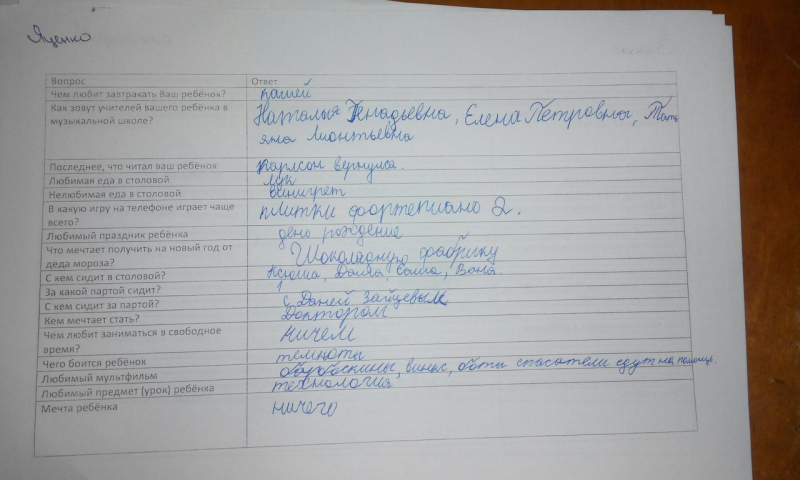 Яценко
Вопрос Ответ
Чем любит завтракать Ваш ребёнок? кашей
Как зовут учителей вашего ребёнка в Наталья Генадьевна, Елена Петровна, Тать
музыкальной школе? яна Лионтьевна
Последнее, что читал ваш ребёнок Карлсон вернулса.
Любимая еда в столовой лук
Нелюбимая еда в столовой винигрет
В какую игру на телефоне играет чаще плитки фортепиано 2.
всего?
Любимый праздник ребёнка день рождение
Что мечтает получить на новый год от Шоколадную фабрику
деда мороза?
С кем сидит в столовой? Ксюша, Даша, Саша, Ваня.
За какой партой сидит? 1
С кем сидит за партой? с Даней Зайцевым
Кем мечтает стать? Доктором
Чем любит заниматься в свободное ничем
время?
Чего боится ребёнок темноты
Любимый мультфильм барбоскины, винкс, спасатели едут на помощь.
Любимый предмет (урок) ребёнка технология
Мечта ребёнка ничего